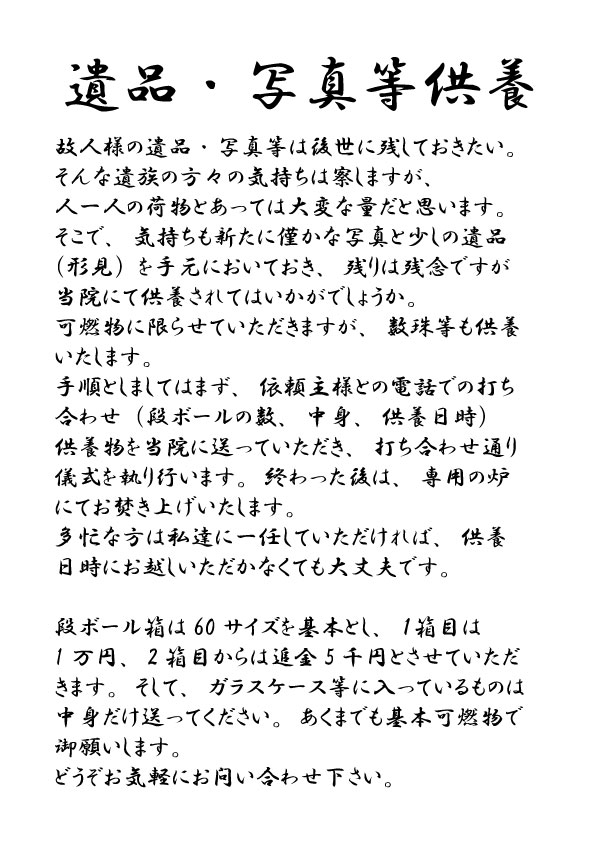 遺品・写真等供養
故人様の遺品・写真等は後世に残しておきたい。
そんな遺族の方々の気持ちは察しますが、
人一人の荷物とあっては大変な量だと思います。
そこで、気持ちも新たに僅かな写真と少しの遺品
（形見）を手元においておき、残りは残念ですが
当院にて供養されてはいかがでしょうか。
可燃物に限らせていただきますが、数珠等も供養
いたします。
手順としましてはまず、依頼主様との電話での打ち
合わせ（段ボールの数、中身、供養日時）
供養物を当院に送っていただき、打ち合わせ通り
儀式を執り行います。終わった後は、専用の炉
にてお焚き上げいたします。
多忙な方は私達に一任していただければ、供養
日時にお越しいただかなくても大丈夫です。
段ボール箱は60サイズを基本とし、1箱目は
1万円、2箱目からは追金5千円とさせていただ
きます。そして、ガラスケース等に入っているものは
中身だけ送ってください。あくまでも基本可燃物で
御願いします。
どうぞお気軽にお問い合わせ下さい。